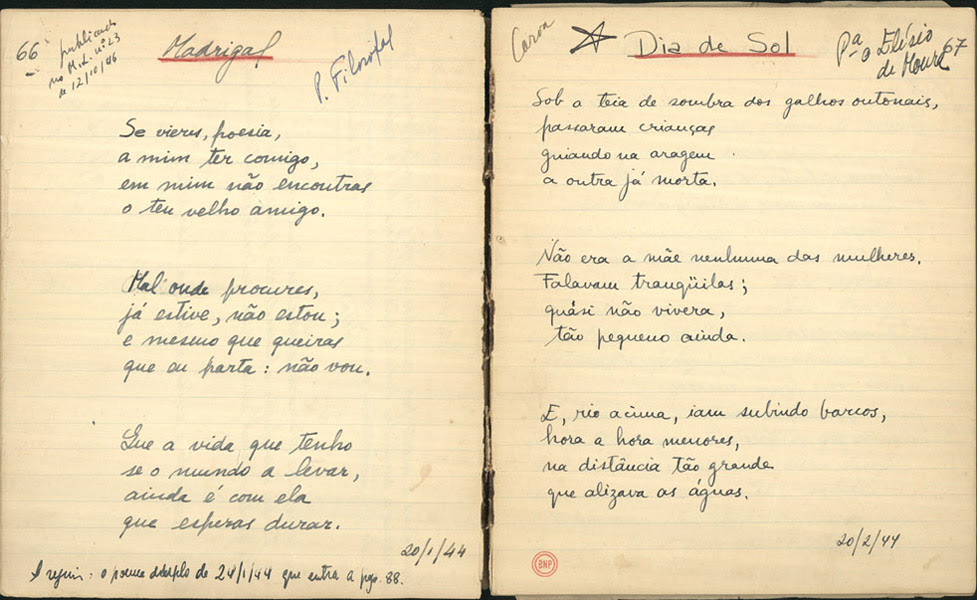 66
publicado
no M.L. nº 23
de 12/10/46
Madrigal
P. Filosofal
Se vieres, poesia,
a mim ter comigo,
em mim não encontras
o teu velho amigo.
Mal onde procures,
já estive, não estou;
e mesmo que queiras
que eu parta: não vou.
Que a vida que tenho
se o mundo a levar,
ainda é com ela
que esperas durar.
20/1/44
A seguir: o poema de 24/1/44 que entra a pgs. 88.
Coroa
Dia de Sol
Pª o Elísio
de Moura
67
Sob a teia de sombra dos galhos outonais,
passaram crianças
guiando na aragem
a outra já morta.
Não era a mãe nenhuma das mulheres.
Falavam tranqüilas;
quási não vivera,
tão pequeno ainda.
E, rio acima, iam subindo barcos,
hora a hora menores,
na distância tão grande
que alizava as águas.
20/2/44
BNP